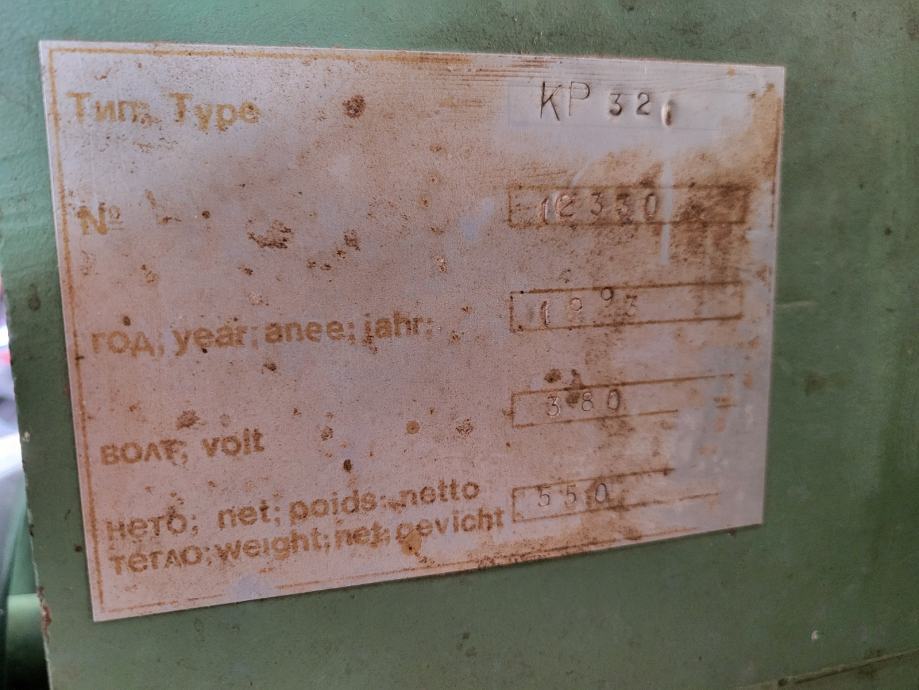 Тип; Type KP 32
№ 12330
год; year; anee; jahr: 1993
волт; volt 380
нето; net; poids; netto 550
тегло; weight; net; gevicht